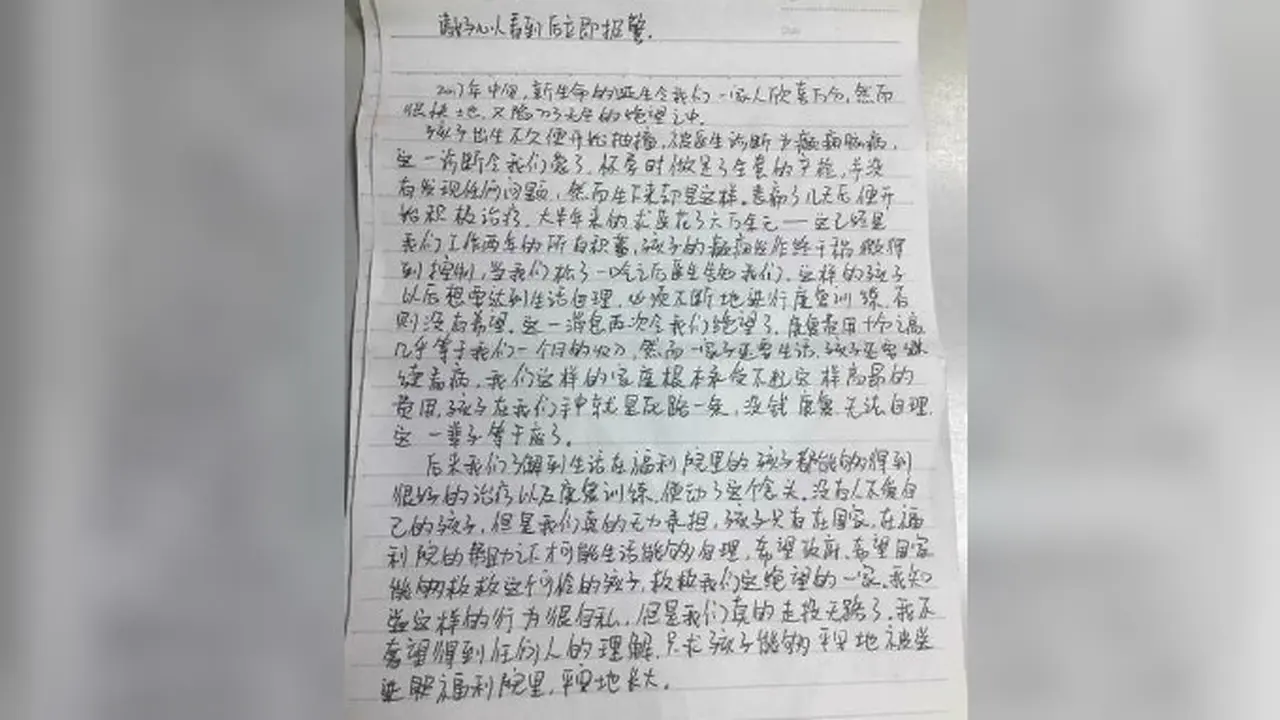 请好心人看到后立即报警.
2017年中旬,新生命的诞生令我们一家人欣喜万分,然而
很快地,又陷入了无尽的绝望之中.
孩子出生不久便开始抽搐,被医生诊断为癫痫脑病,
这一诊断令我们懵了.怀孕时做足了全套的产检,并没
有发现任何问题,然而生下来却是这样.悲痛了几天后便开
始积极治疗,大半年来的求医花了六万余元——这已经是
我们工作两年的所有积蓄,孩子的癫痫发作终于稍微得
到控制,当我们松了一口气之后医生告知我们,这样的孩子
以后想要达到生活自理,必须不断地进行康复训练,否
则没有希望.这一消息再次令我们绝望了,康复费用十分之高
几乎等于我们一个月的收入,然而一家子还要生活,孩子还要继
续看病,我们这样的家庭根本承受不起这样高昂的
费用,孩子在我们手中就是死路一条,没钱康复无法自理,
这一辈子等于废了.
后来我们了解到生活在福利院里的孩子都能够得到
很好的治疗以及康复训练,便动了这个念头.没有人不爱自
己的孩子,但是我们真的无力承担,孩子只有在国家,在福
利院的帮助之下才可能生活能够自理,希望政府,希望国家
能够救救这个可怜的孩子,救救我们这绝望的一家.我知
道这样的行为很自私,但是我们真的走投无路了,我不
希望得到任何人的理解,只求孩子能够平安地被送
进福利院里,平安地长大.
Date